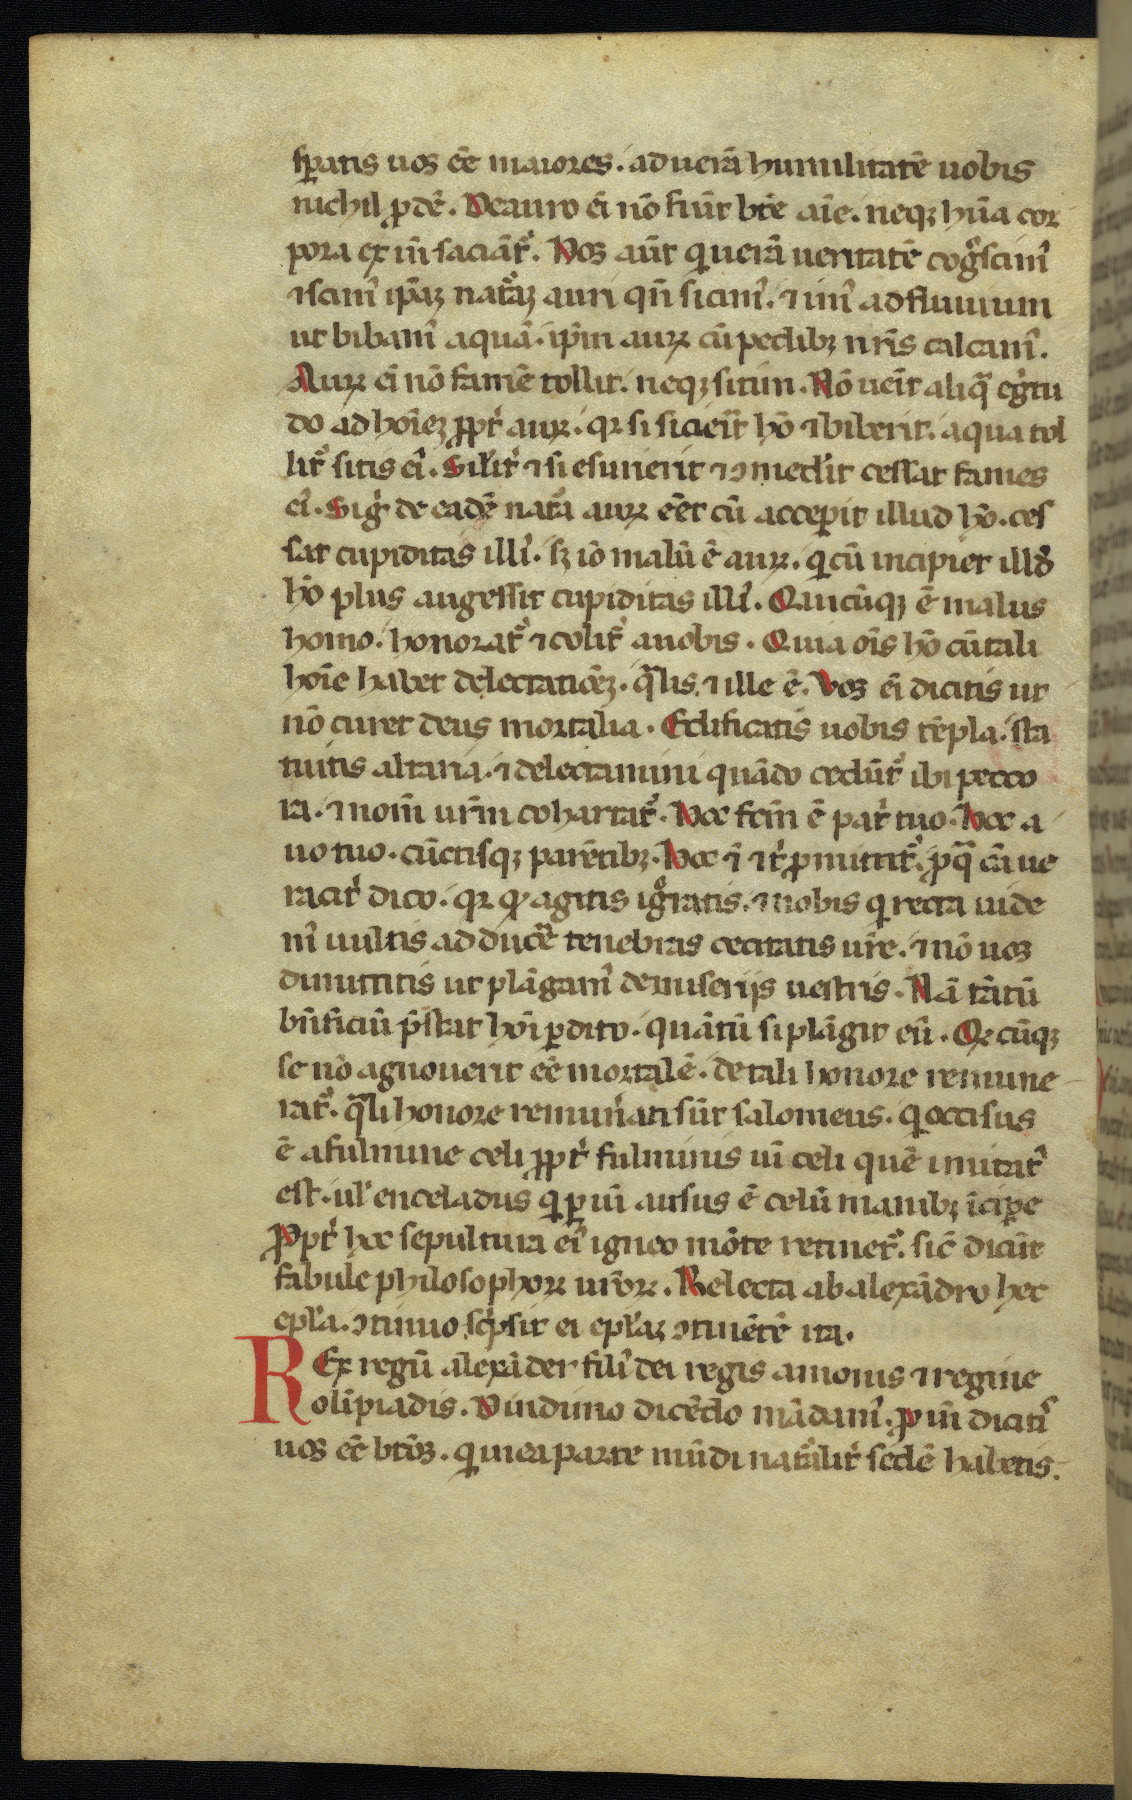 speratis uos eē maiores. ad uerā humilitatē uobis
nichil ꝓdē. De auro ei nō fiūt btē aīe. neqꝫ hūa cor
pora ex iīi saciāt᷑. Nos aūt qui uerā ueritatē cog̊scimꝰ
⁊ scimꝰ ipāꝫ nat᷑aꝫ auri qn̄ sicimꝰ. ⁊ imꝰ ad fluuium
ut bibamꝰ aquā. ip̄m auꝝ cū pedibꝫ nr̄is calcamꝰ.
Auꝝ ei nō famē tollit. neqꝫ sitim. Nō uēit aliqͣ eg̓tu
do ad hoīeꝫ ꝓpt̓ auꝝ. qꝛ si sicieīt hō ⁊ biberit. aqua tol
lit᷑ sitis eiꝰ. Silīt̓ ⁊ si esurierit ⁊ ꝯmed̓it cessat fames
eiꝰ. Sig̓ de eadē nat᷑a auꝝ eēt cū acceperit illud hō. ces
sat cupiditas illiꝰ. sꝫ iō malū ē auꝝ. qͥ cū incipiet illd̓
hō plus augessit cupiditas illiꝰ. Qauicūqꝫ ē malus
homo. honorat᷑ ⁊ colit᷑ a uobis. Quia oīs hō cū tali
hoīe habet delectationēꝫ. qͣlis ⁊ ille ē. Vos ei dicitis ut
nō curet deus mortalia. Edificatis uobis tēpla. sta
tuitis altaria. ⁊ delectamini quādo cedūt᷑ ibi pecco
ra. ⁊ nom̄ ur̄m cohartat᷑. Hoc fcm̄ ē pat̓ tuo. Hoc a
uo tuo. cūctisqꝫ parētibꝫ. Hoc ī ⁊ t̓ ꝓmittit᷑. ꝓ qͣ cā ue
racit̓ dico. qꝛ qd̓ agitis ig̊ratis. ⁊ nobis qui recta uide
mꝰ uultis adducē tenebras cecitatis ur̄e. ⁊ nō uos
dimittitis ut plāgamꝰ de miserijs uestris. Nā tātū
bn̄ficiū p̄stat hoī ꝑdito. quātū si plāgit eū. Qicūqꝫ
se nō agnouerit eē mortalē. de tali honore remune
rat᷑. qͣli honore remun̓ati sūt salomeus. qui occisus
ē a fulmine celi ꝓpt̓ fulminis uī celi quē imitatꝰ
est. ul̓ enceladus qui ꝑ uī ausus ē celū manibꝫ īcipe
Ꝓpt̓ hoc sepultura eiꝰ igneo mōte retinet᷑. sic̄ dicūt
fabule philosophoꝝ ur̄oꝝ. Relecta ab alexādro hec
epl̓a. ꝯtinuo sc̓psit ei epl̓aꝫ ꝯtinētē ita.
REx regū alexāder filiꝰ dei regis amonis ⁊ regine
olīpiadis. Dindimo dicēdo mādamꝰ. Ꝓ iīi dicitꝰ
uos eē btōs. qui in ea parte mūdi nat᷑alit̓ sedē habetis.